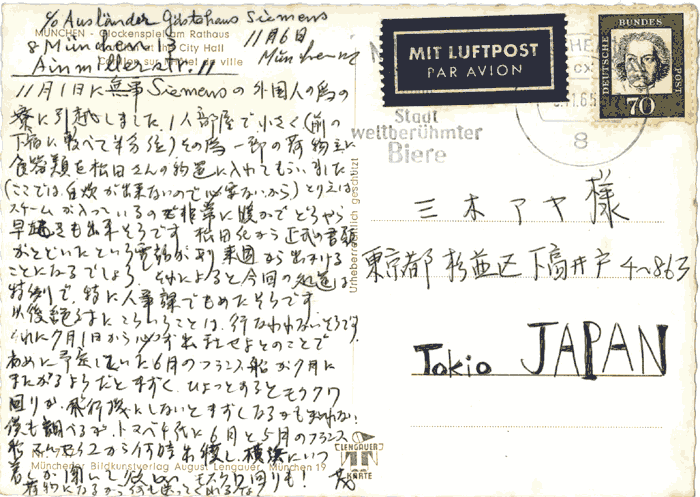 c/o Ausländer Gästehaus Siemens
8 München 13
Ainmillerstr. 11
11月6日
München
MÜNCHEN - Glockenspiel am Rathaus
11月1日に無事Siemensの外国人の為の
寮に引越しました。1人部屋で小さく(前の
下宿に較べて半分位)その為一部の荷物主に
食器類を松田さんの物置に入れてもらいました
(ここでは自炊が出来ないので必要ないから)とりえは
スチームが入っているので非常に暖かでどうやら
早起きも出来そうです。松田氏から正式の書類
がとどいたという電話があり来週から出かける
ことになるでしょう。それによると今回の処置は
特別で、特に人事課でもめたそうです。
以後絶対にこういうことは行なわれないそうです。
それに7月1日から必ず出社せよとのことで
始めに予定していた6月のフランス船が7月に
またがるようだとまずく、ひょっとするとモスクワ
回りか飛行機にしないとまずくなるかもしれない
僕も調べるが、6月と5月のフランス
船 何時出発し、横浜にいつ
着くか聞いて欲しい。モスクワ回りも!
Münchener Bildkunstverlag August Lengauer, München 19
Urheberrechtlich geschützt
LENGAUER
KARTE
MIT LUFTPOST
PAR AVION
Stadt
weltberühmter
Biere
8
DEUTSCHE BUNDESPOST
70
三木アヤ様
東京都杉並区下高井戸4~863
Tokio JAPAN